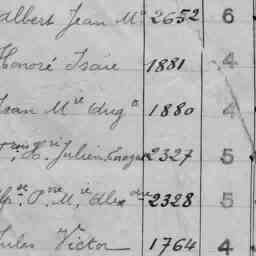 Albert Jean Mie 2652 6
Honoré Isaïe 1881 4
Jean Mie Aug 1880 4
Julien 2327 5
Mie Alexdre 2328 5
Jules Victor 1764 4